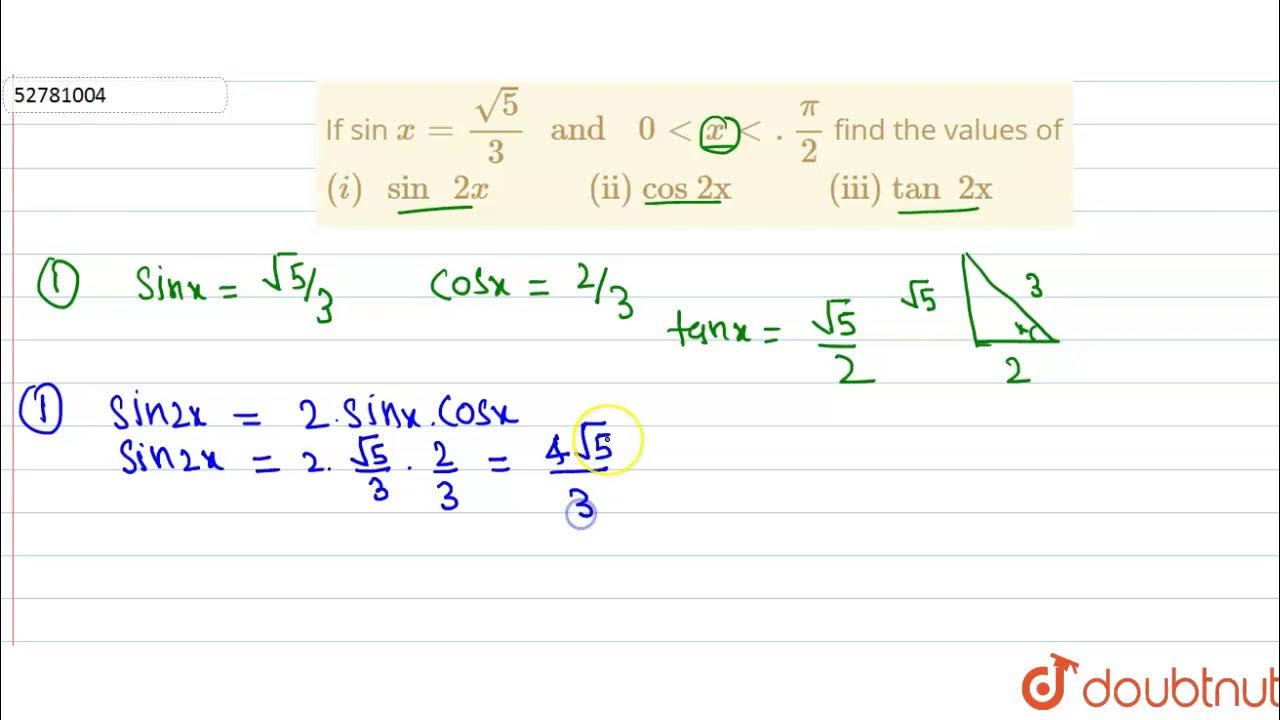 52781004
If sin x = √5/3 and 0 < x < . π/2 find the values of
(i) sin 2x (ii) cos 2x (iii) tan 2x
① sinx = √5/3 cosx = 2/3
tanx = √5/2
√5 3
x
2
① sin2x = 2.sinx.cosx
sin2x = 2. √5/3 . 2/3 = 4√5/3
doubtnut